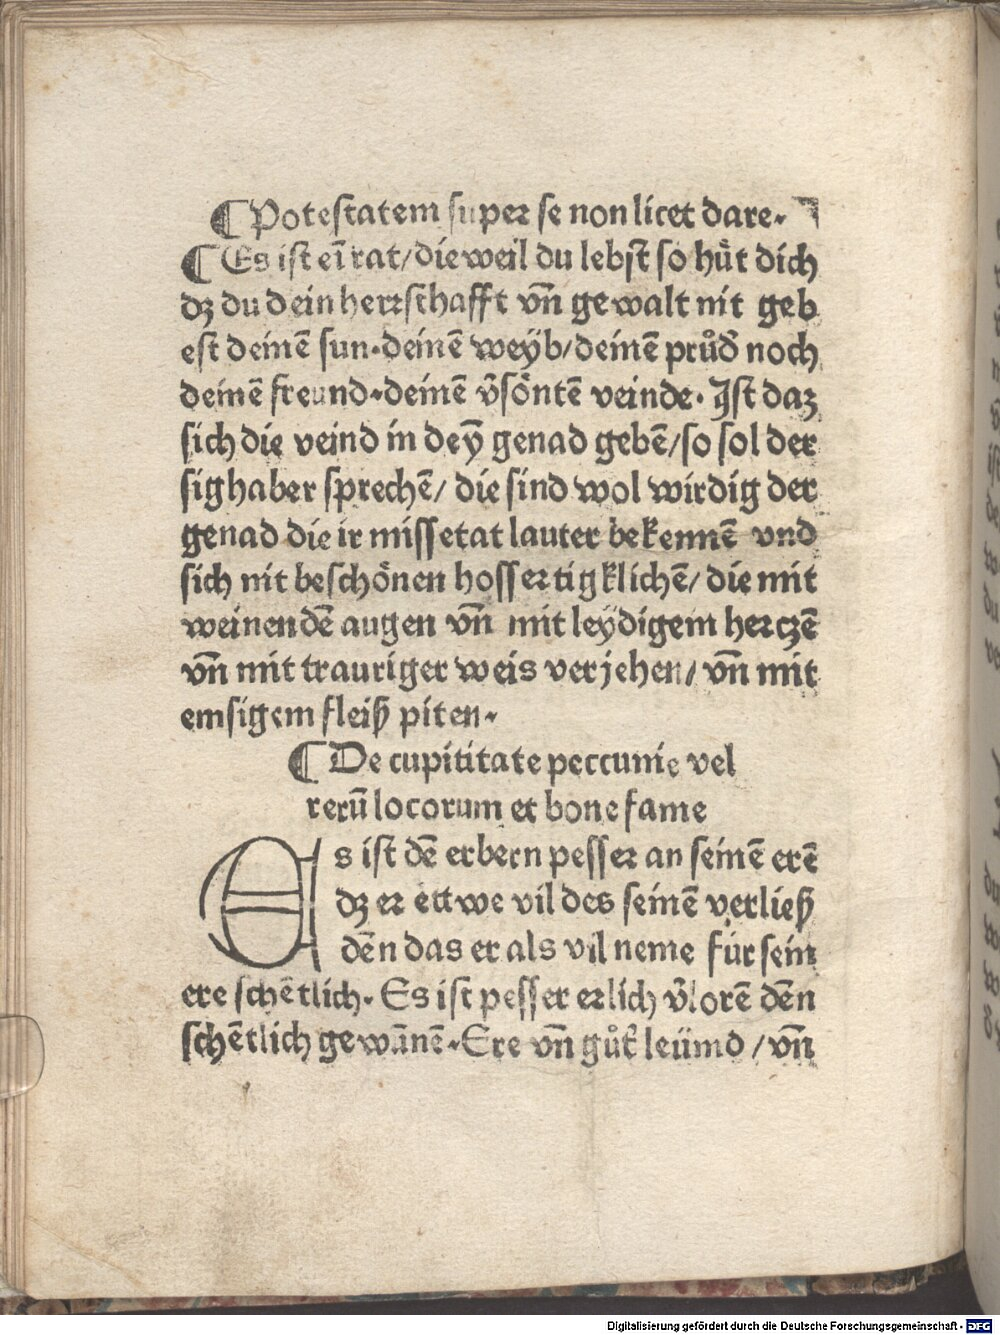 ¶ Potestatem super se non licet dare.
¶ Es ist eī rat/die weil du lebst so hu̇t dich
dz du dein herrschafft vn̄ gewalt nit geb
est deinē sun.deinē weÿb/deinē průd̄ noch
deinē freund.deinē v̄söntē veinde. Ist daz
sich die veind in deȳ genad gebē/so sol der
sighaber sprechē/ die sind wol wirdig der
genad die ir missetat lauter bekennē vnd
sich nit beschönen hoffertigklichē/ die mit
weinendē augen vn̄ mit leÿdigem herczē
vn̄ mit trauriger weis verjehen/ vn̄ mit
emsigem fleiß piten.
¶ De cupititate peccunie vel
rerū locorum et bone fame
Es ist dē erbern pesser an seinē erē
dz er ettwe vil des seinē verließ
dēn das er als vil neme für sein
ere schētlich. Es ist pesser erlich v̄lorē dēn
schētlich gewānē.Ere vn̄ gůt leümd /vn̄
Digitalisierung gefördert durch die Deutsche Forschungsgemeinschaft - DFG